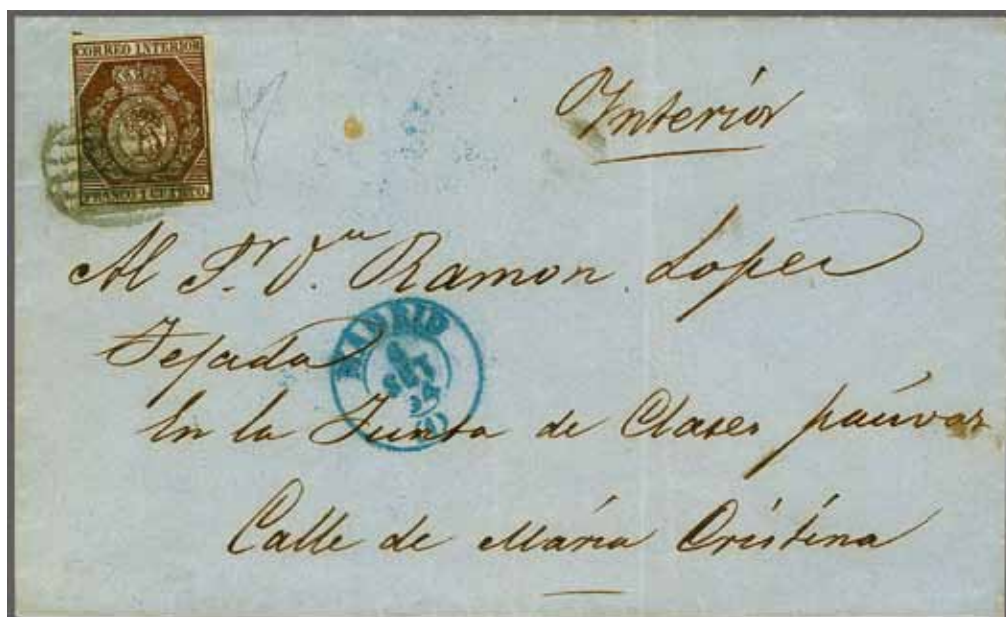 CORREO INTERIOR
FRANCO 1 CUARTO.
Interior
Al Sr. Dn. Ramon Lopez
Tejada
MADRID
SET
54
(1)
En la Junta de Clases pasivas
Calle de María Cristina